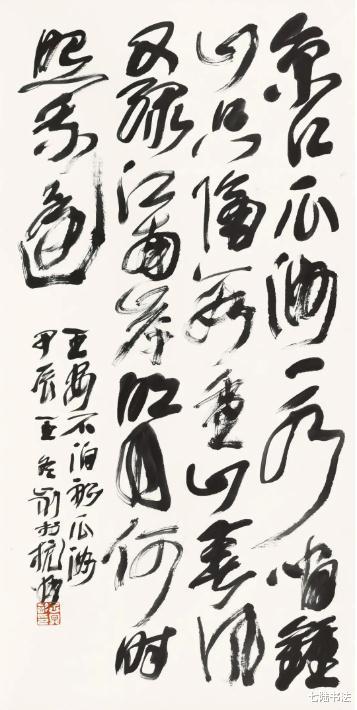 京口瓜洲一水間鍾
山只隔數重山春風
又綠江南岸明月何時
照我還
王安石泊船瓜洲
甲辰王冬齡於杭州
七陆书法